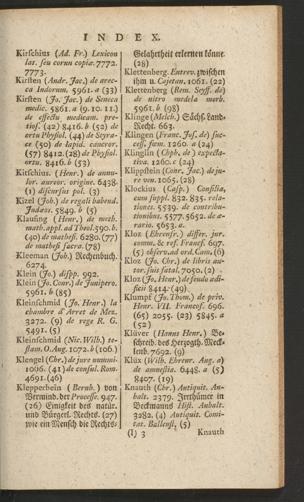 INDEX.
Kirschius (Ad. Fr.) Lexicon
lat. seu cornu copiæ. 7772.
7773.
Kirsten (Andr. Jac.) de arec-
ca Indorum. 5961. a (33)
Kirsten (Jo. Jac.) de Seneca
medic. 5861. a (9. 10. 11.)
de effectu medicam. pre-
tios. (42) 8416. b (52) de
ortu Physiol. (44) de Scyra-
ce (50) de lapid. cancror.
(57) 8412. (28) de Physiol.
ortu. 8416. b (53)
Kitschius. (Henr.) de annu-
lor. aureor. origine. 6438.
(1) discursus pol. (3)
Kizel (Joh.) de regali habend.
Judæos. 5849. b (5)
Klausing (Henr.) de moth.
math. appl. ad Theol. 590. b.
(40) de mathesi. 6280. (77)
de mathesi sacra. (78)
Kleeman (Joh.) Rechenbuch.
6274
Klein (Jo.) dispp. 992.
Klein (Jo. Conr.) de Junipero.
5961. b (85)
Kleinschmid (Jo. Henr.) la
chambre d'Arret de Mez.
3272. (9) de rege R. G.
5491. (5)
Kleinschmid (Nic. Wilh.) te-
stam. O. Aug. 1072. b (106.)
Klengel (Chr.) de jure nummi.
1006. (41) de consul. Rom.
4691. (46)
Klepperbein (Bernh.) von
Vermind. der Processe. 947.
(26) Einigkeit des natür.
und Bürgerl. Rechts. (27)
wie ein Mensch die Rechts-
Gelahrtheit erlernen könne.
(28)
Klettenberg. Entrev. zwischen
ihm u. Cajetan. 1061. (22)
Klettenberg (Rem. Seyff. de)
de nitro medela morb.
5961. b (98)
Klinge (Melch.) Sächs. Land-
Recht. 663.
Klingen (Franc. Jos. de) suc-
cess. fam. 1260. a (24)
Klinglin (Chph. de) expecta-
tiva. 1260. c (24)
Klippstein (Conr. Jac.) de ju-
re von. 1065. (28)
Klockius (Casp.) Consilia,
cum suppl. 832. 835. rela-
tiones. 5539. de contribu-
tionibus. 5577. 5652. de æ-
rario. 5653. a.
Kloz (Ehrenfr.) differ. jur.
comm. & ref. Francf. 607.
(5) observ. ad ord. Cam. (6)
Kloz (Jo. Chr.) de libris au-
tor. suis fatal. 7050. (2)
Kloz (Jo. Henr.) de feudo adi-
ficii 8414. (49)
Klumpf (Jo. Thom.) de priv.
Henr. VII. Francof. 696.
(65) 2055. (23) 5845. a
(52)
Klüver (Hanns Henr.) Be-
schreib. des Herzogth. Meck-
lenb. 7692. (9)
Klüx (Wilh. Ehrenr. Aug. a)
de amnestia. 6448. a (5)
8407. (19)
Knauth (Chr.) Antiquit. An-
halt. 2379. Irrthümer in
Beckmanns Hist. Anhalt.
3282. (4) Antiquit. Comi-
tat. Ballenst. (5)
(I) 3 Knauth